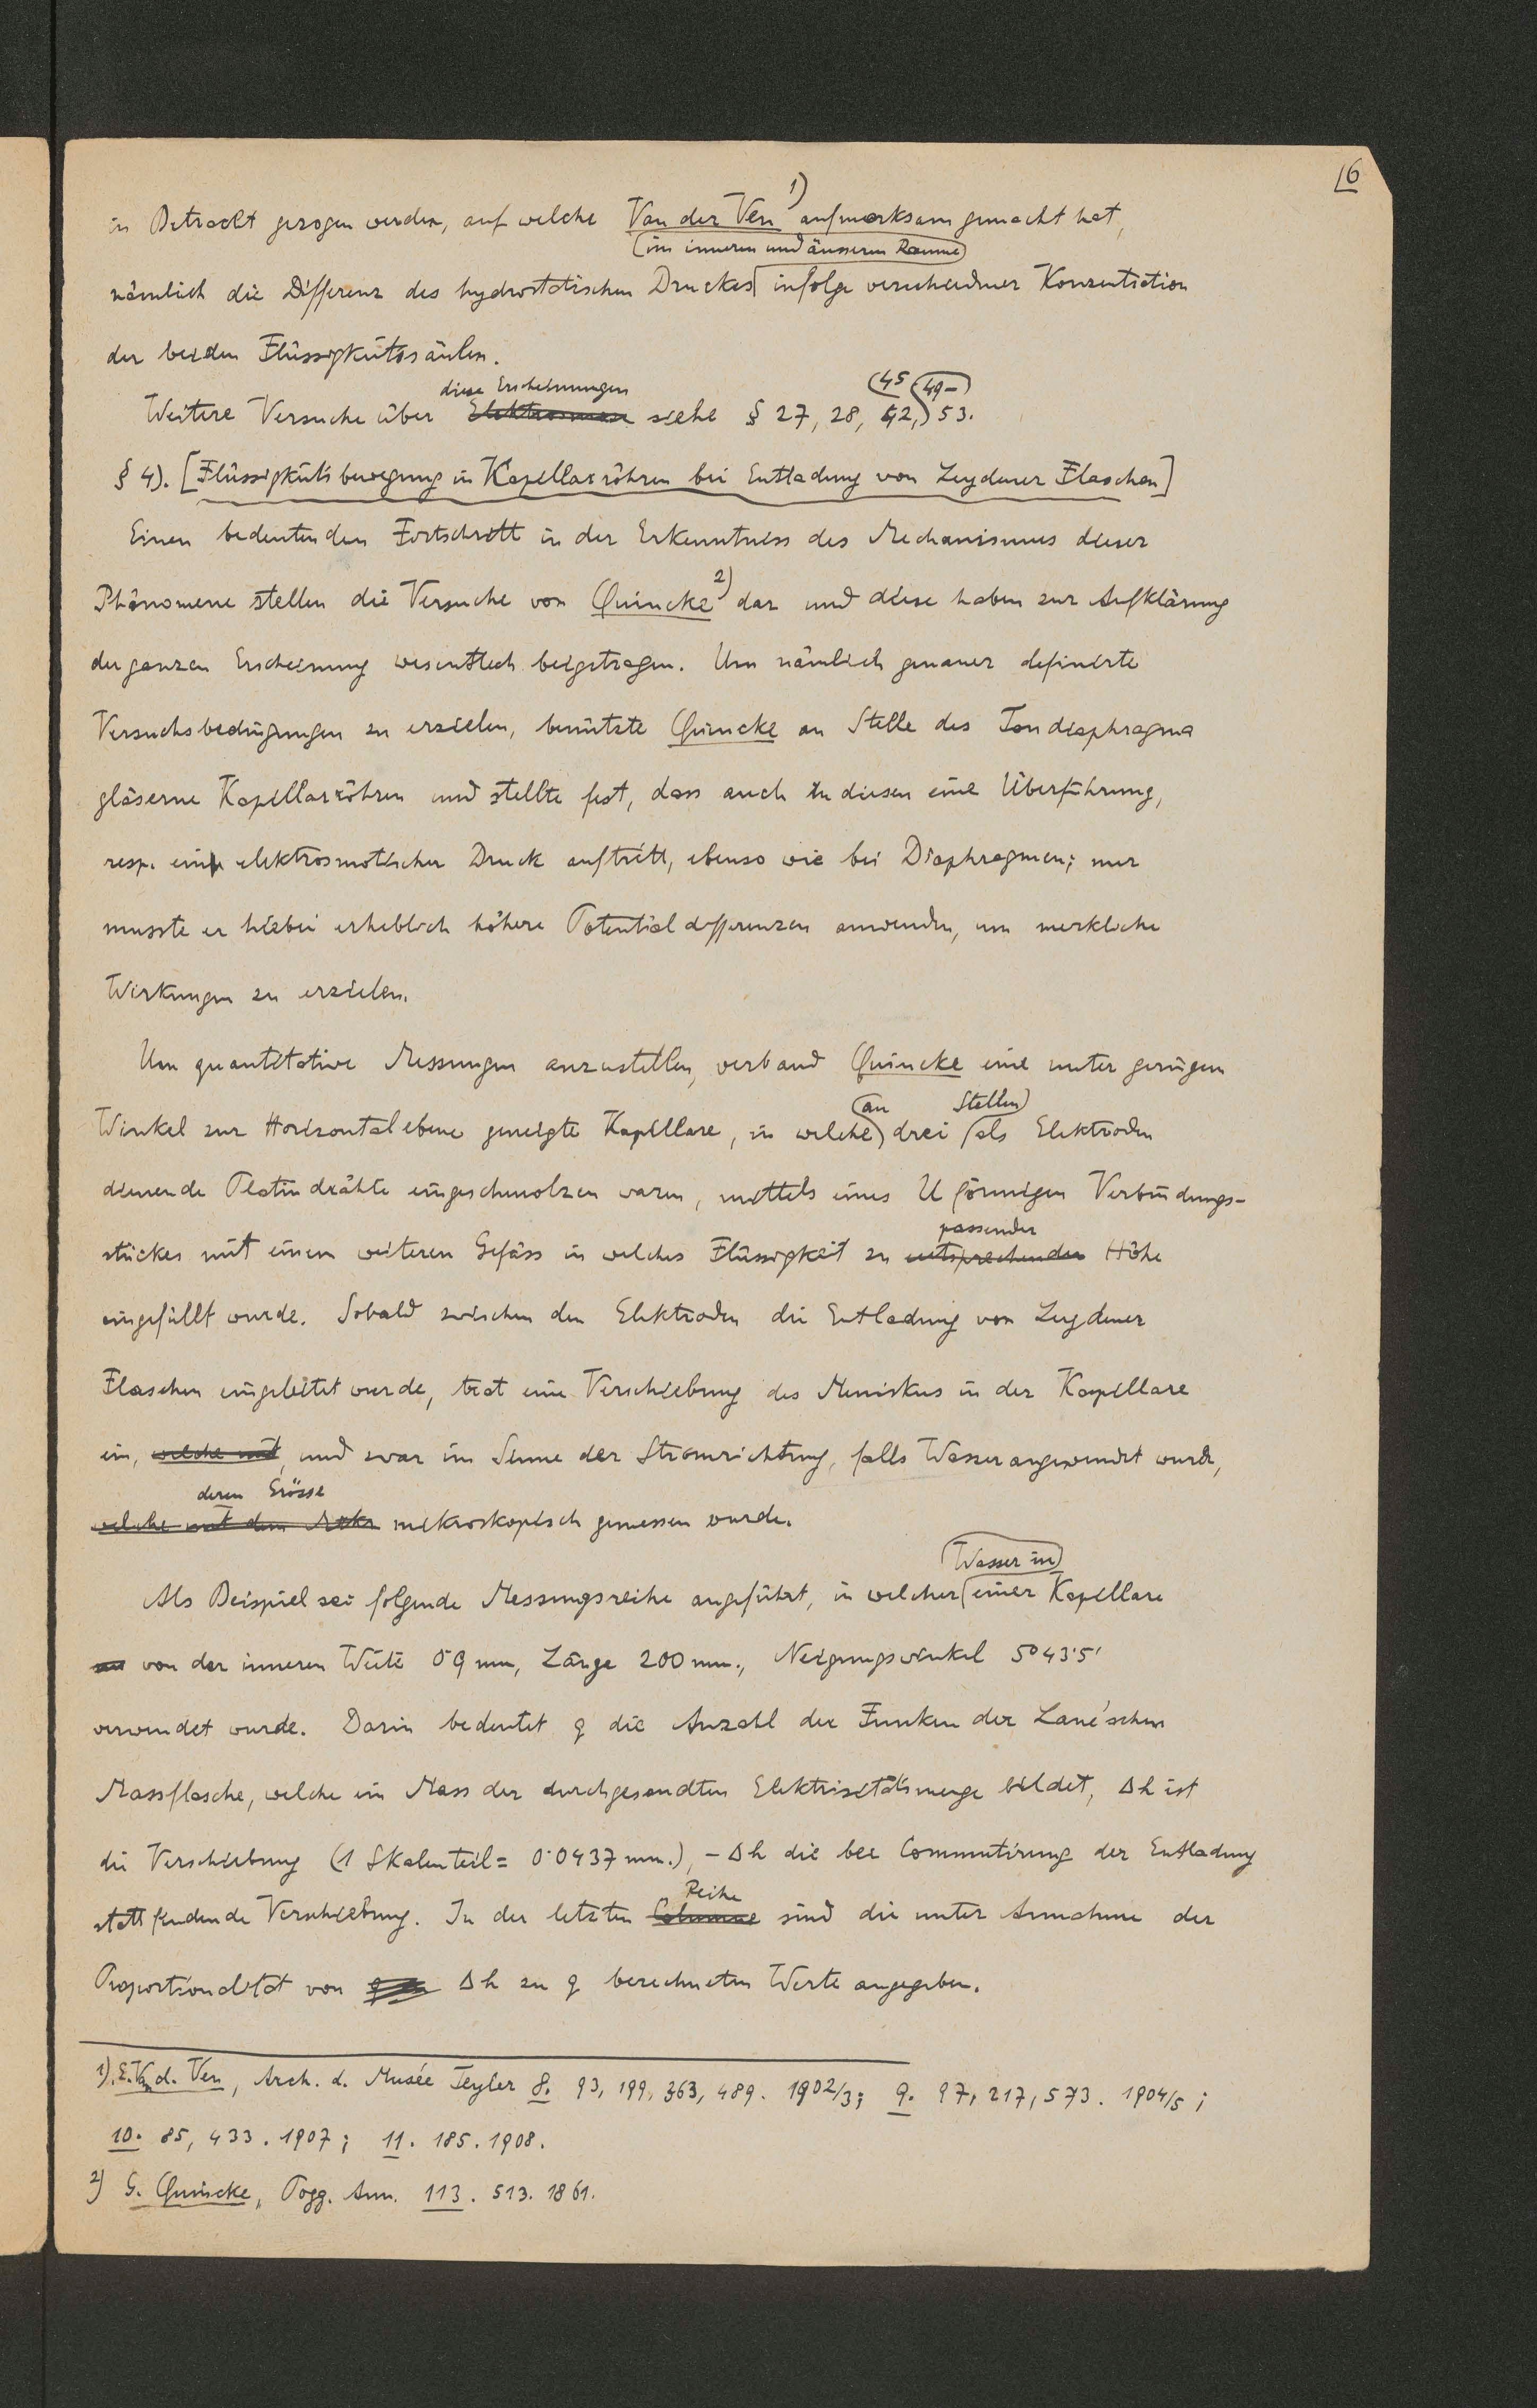 16
in Betracht gezogen werden, auf welche Van der Ven 1) aufmerksam gemacht hat,
(im inneren und äusseren Raume)
nämlich die Differenz des hydrostatischen Druckes infolge verschiedner Konzentration
der beiden Flüssigkeitssäulen.
diese Erscheinungen (45 (49-)
Weitere Versuche über Elektrosmose siehe § 27, 28, 52, 53.
§ 4). [Flüssigkeitsbewegung in Kapillarröhren bei Entladung von Leydener Flaschen]
Einen bedeutenden Fortschritt in der Erkenntniss des Mechanismus dieser
Phänomene stellen die Versuche von Quincke 2) dar und diese haben zur Aufklärung
der ganzen Erscheinung wesentlich beigetragen. Um nämlich genauer definirte
Versuchsbedingungen zu erzielen, benützte Quincke an Stelle des Tondiaphragma
gläserne Kapillarröhren und stellte fest, dass auch in diesen eine Überführung,
resp. ein elektrosmotischer Druck auftritt, ebenso wie bei Diaphragmen; nur
musste er hiebei erheblich höhere Potentialdifferenzen anwenden, um merkliche
Wirkungen zu erzielen.
Um quantitative Messungen anzustellen, verband Quincke eine unter geringen
(an Stellen)
Winkel zur Horizontalebene geneigte Kapillare, in welche drei als Elektroden
dienende Platindrähte eingeschmolzen waren, mittels eines U förmigen Verbindungs-
passender
stückes mit einem weiteren Gefäss in welches Flüssigkeit zu entsprechender Höhe
eingefüllt wurde. Sobald zwischen den Elektroden die Entladung von Leydener
Flaschen eingeleitet wurde, trat eine Verschiebung des Meniskus in der Kapillare
ein, welche mit, und zwar im Sinne der Stromrichtung, falls Wasser angewendet wurde,
deren Grösse
welche mit dem Mikr mikroskopisch gemessen wurde.
(Wasser in)
Als Beispiel sei folgende Messungsreihe angeführt, in welcher einer Kapillare
von der inneren Weite 0·9 mm, Länge 200 mm., Neigungswinkel 5° 43·5'
verwendet wurde. Darin bedeutet q die Anzahl der Funken der Lane'schen
Massflasche, welche ein Mass der durchgesandten Elektrizitätsmenge bildet, Δh ist
die Verschiebung (1 Skalenteil = 0·0437 mm.), -Δh die bei Commutirung der Entladung
Reihe
stattfindende Verschiebung. In der letzten Columne sind die unter Annahme der
Proportionalität von Δh zu q berechneten Werte angegeben.
1). E. V. d. Ven, Arch. d. Musée Teyler 8. 93, 199, 363, 489. 1902/3; 9. 97, 217, 573. 1904/5;
10. 85, 433. 1907; 11. 185. 1908.
2) G. Quincke, Pogg. Ann. 113. 513. 1861.